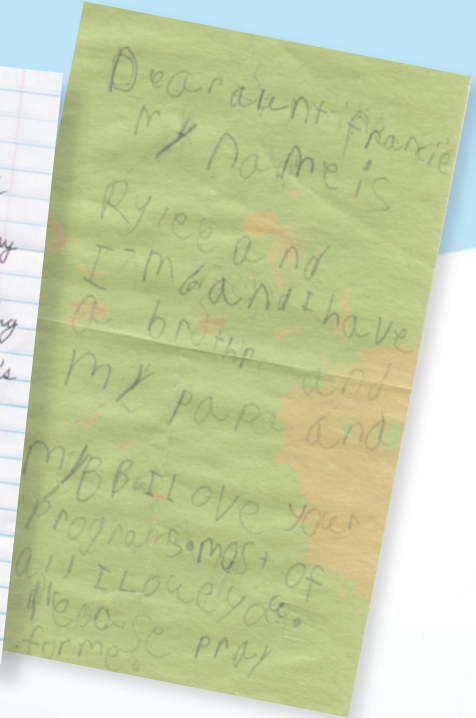 y
ng
's
Dear aunt francie
my name is
Rylee and
I'm 6 and I have
a brothr and
my papa and
my BB I LOVE your
programs. most of
all I Love you.
Please pray
for me.